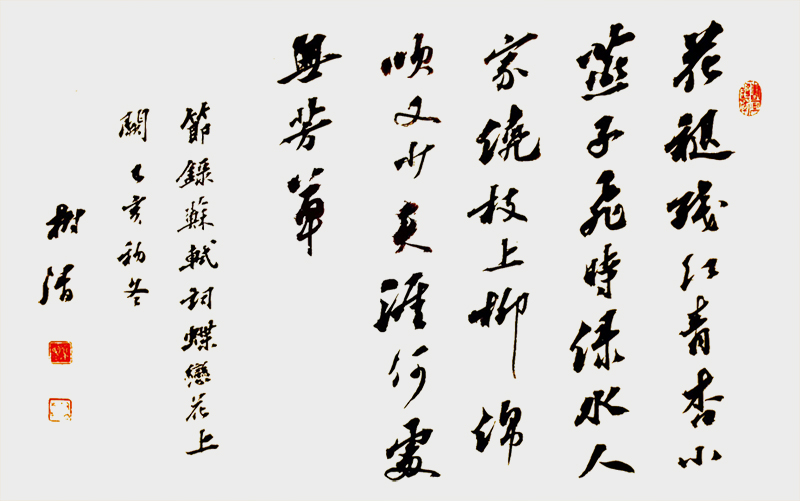 花褪殘紅青杏小
燕子飛時緑水人
家繞枝上柳綿
吹又少天涯何處
無芳草
節錄蘇軾詞蝶戀花上
闋乙亥初冬
樹清